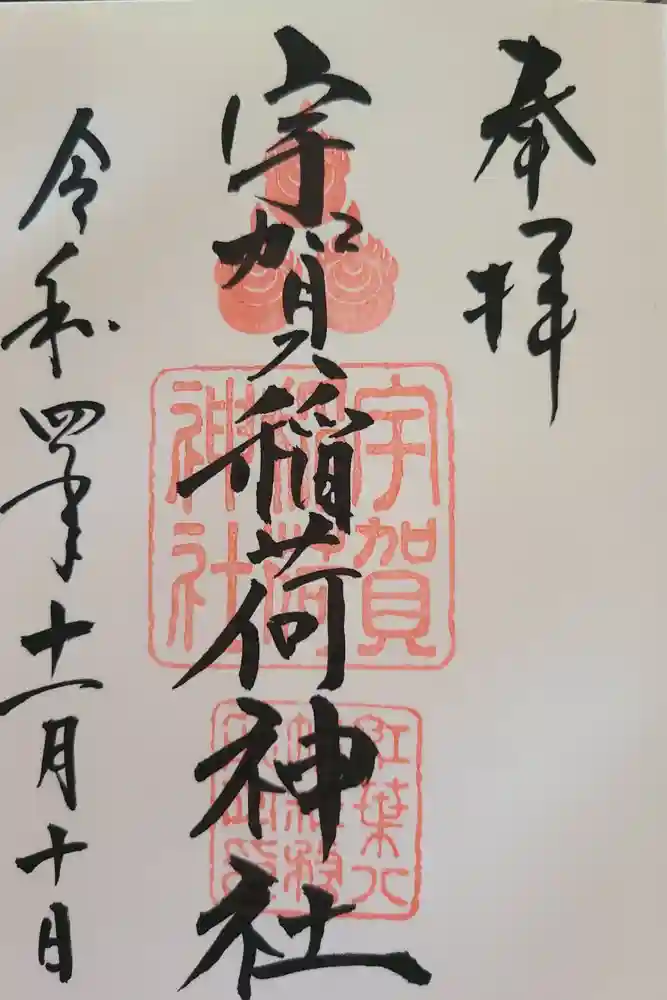 奉拝
宇賀稲荷神社
令和四年十一月十日
宇賀
稲荷
神社
紅葉八